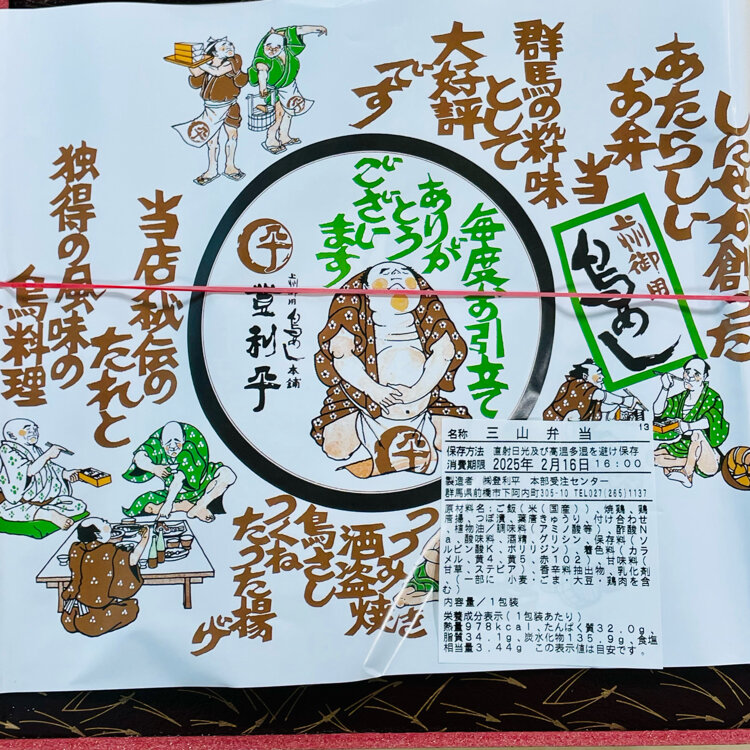 しにせが創った
あたらしい
お弁当
群馬の粋味
として
大好評
です
毎度お引立て
ありが
とう
ござい
ます
上州御用
鳥めし
平
上州御用 鳥めし 本舗
登利平
平
平
当店秘伝の
たれと
独得の風味の
鳥料理
つつめし
酒盗焼き
鳥さし
つくね
たつた揚げ
13
名称 三山弁当
保存方法 直射日光及び高温多湿を避け保存
消費期限 2025年 2月16日 16:00
製造者 ㈱登利平 本部受注センター
群馬県前橋市下阿内町305-10 TEL027(265)1137
原材料名：ご飯（米（国産））、焼鶏、鶏
唐揚、つぼ漬、葉唐きゅうり、付け合わせ
、植物油／調味料（アミノ酸等）、酢酸N
a、酸味料、酒精、グリシン、保存料（ソ
ルビン酸K、ポリリジン）、着色料（カラ
メル、黄4、黄5、赤102）、甘味料（
甘草、ステビア）、香辛料抽出物、乳化剤
、（一部に 小麦・ごま・大豆・鶏肉を含
む）
内容量／1包装
栄養成分表示（1包装あたり）
熱量978kcal、たんぱく質32.0g、
脂質34.1g、炭水化物135.9g、食塩
相当量3.44g この表示値は目安です。